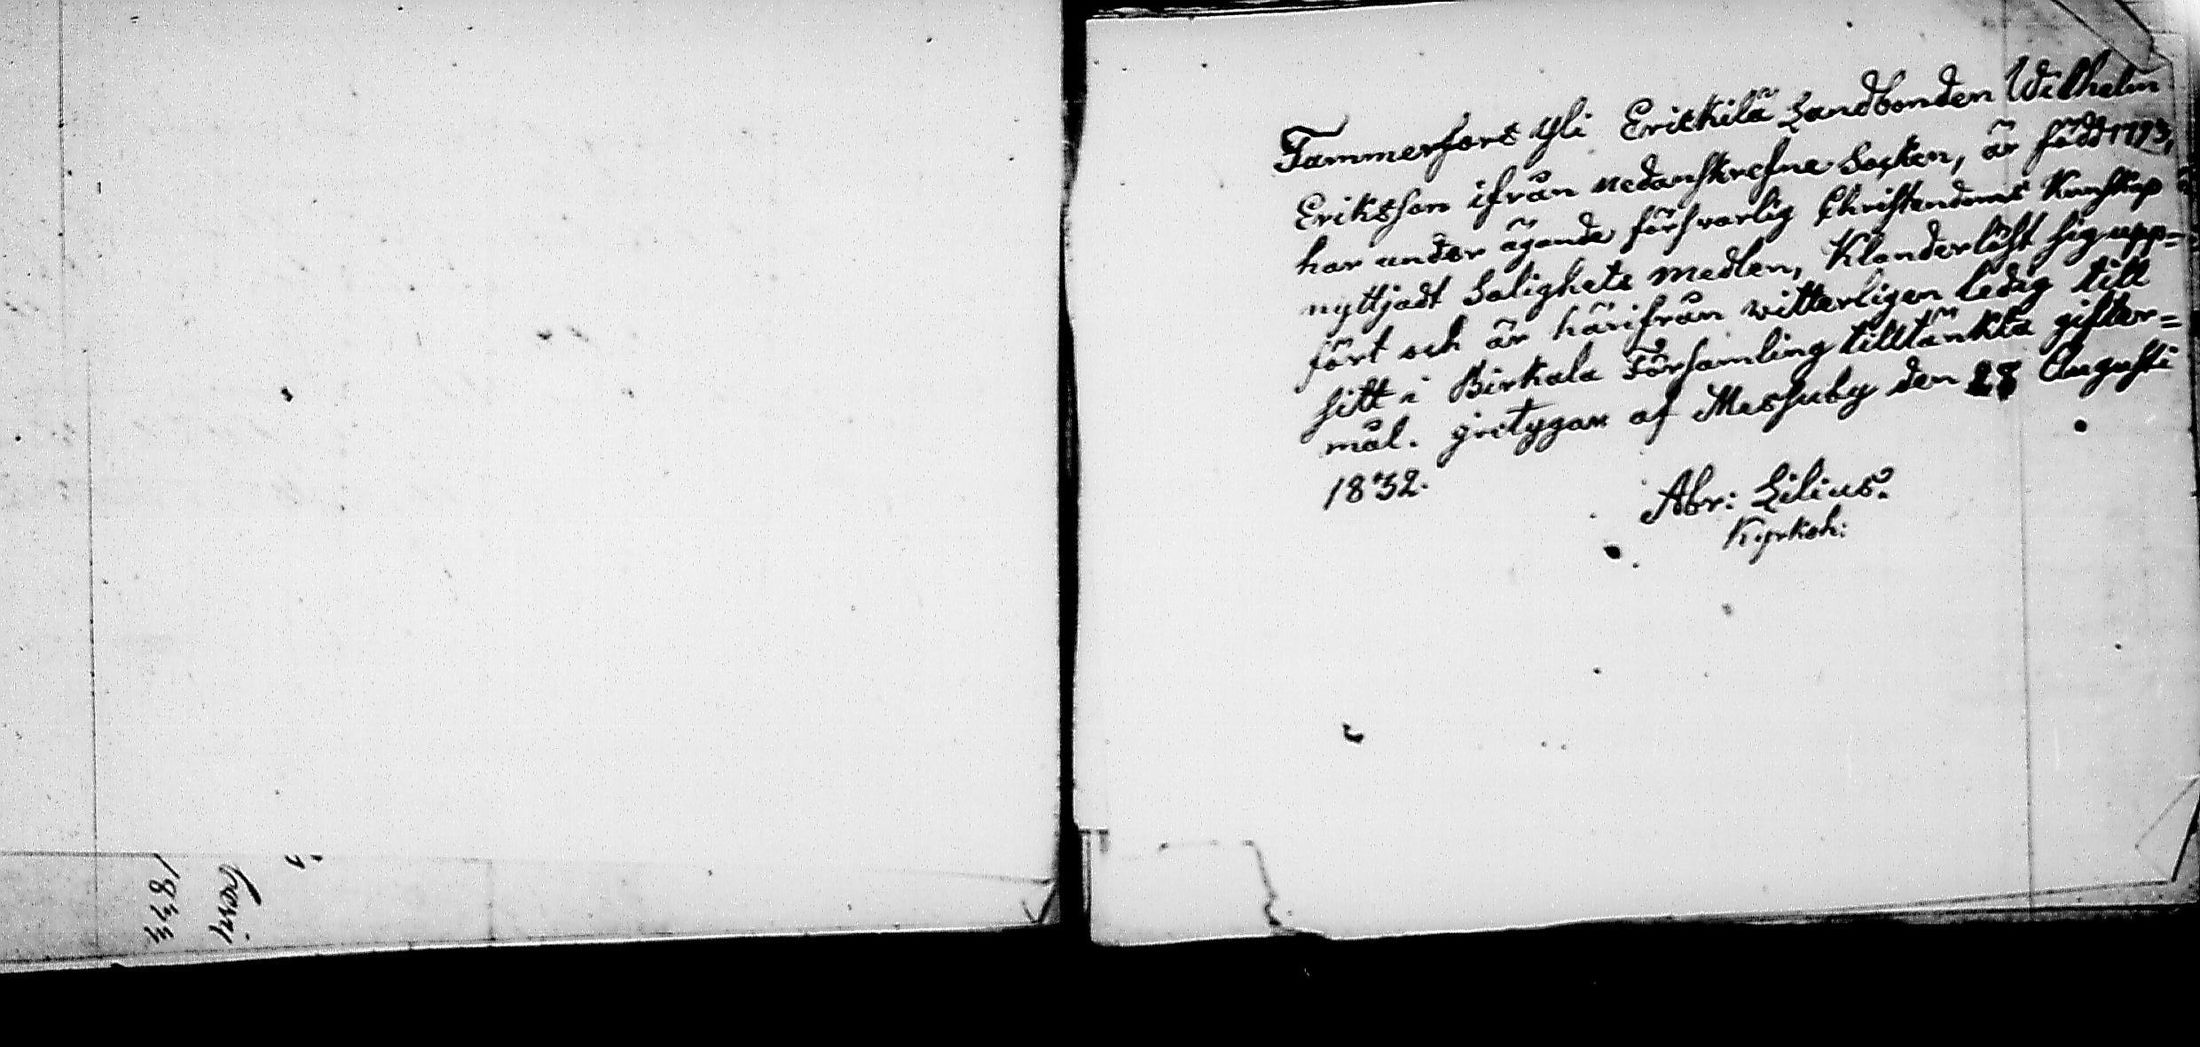 Tammerfors Yli Erickilä Landbonden Wilhelm
Eriksson ifrån nedanskrefne Socken, är född 1793,
har under ägande försvarlig Christendoms Kunskap
nyttjadt Salighets medlen, Klanderlöst sig upp=
fört och är härifrån witterligen ledig till
sitt i Birkala Församling tilltänkta gifter=
mål. Betygar af Messuby den 28 Augusti
1832.
Abr: Lilius.
Kyrkoh: